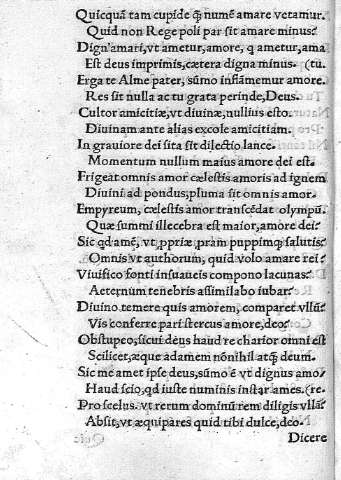 Quicquã tam cupide q̃ numẽ amare vetamur.
Quid non Rege poli par sit amare minus?
Dign'amari, vt ametur, amore, q ametur, ama
Est deus imprimis, cætera digna minus. (tu.
Erga te Alme pater, sũmo inflãmemur amore.
Res sit nulla ac tu grata perinde, Deus.
Cultor amicitiæ, vt diuinæ, nullius esto.
Diuinam ante alias excole amicitiam.
In grauiore dei sita sit dilectio lance.
Momentum nullum maius amore dei est.
Frigeat omnis amor cælestis amoris ad ignem
Diuini ad pondus, pluma sit omnis amor.
Empyreum, cælestis amor transcẽdat olympũ.
Quæ summi illecebra est maior, amore dei?
Sic qd amẽ, vt ppriæ pram puppimq salutis?
Omnis vt authorum, quid volo amare rei?
Viuifico fonti insuaueis compono lacunas?
Aeternum tenebris assimilabo iubar?
Diuino temere quis amorem, comparet vllũ?
Vis conferre pari stercus amore, deo?
Obstupeo, sicui deus haud re charior omni est
Scilicet, æque adamem nõnihil atq̃ deum.
Sic me amet ipse deus, sũmo ẽ vt dignus amo/
Haud scio, qd iuste numinis instar ames. (re.
Pro scelus. vt rerum dominũ rem diligis vllã?
Absit, vt æquipares quid tibi dulce, deo.
Dicere